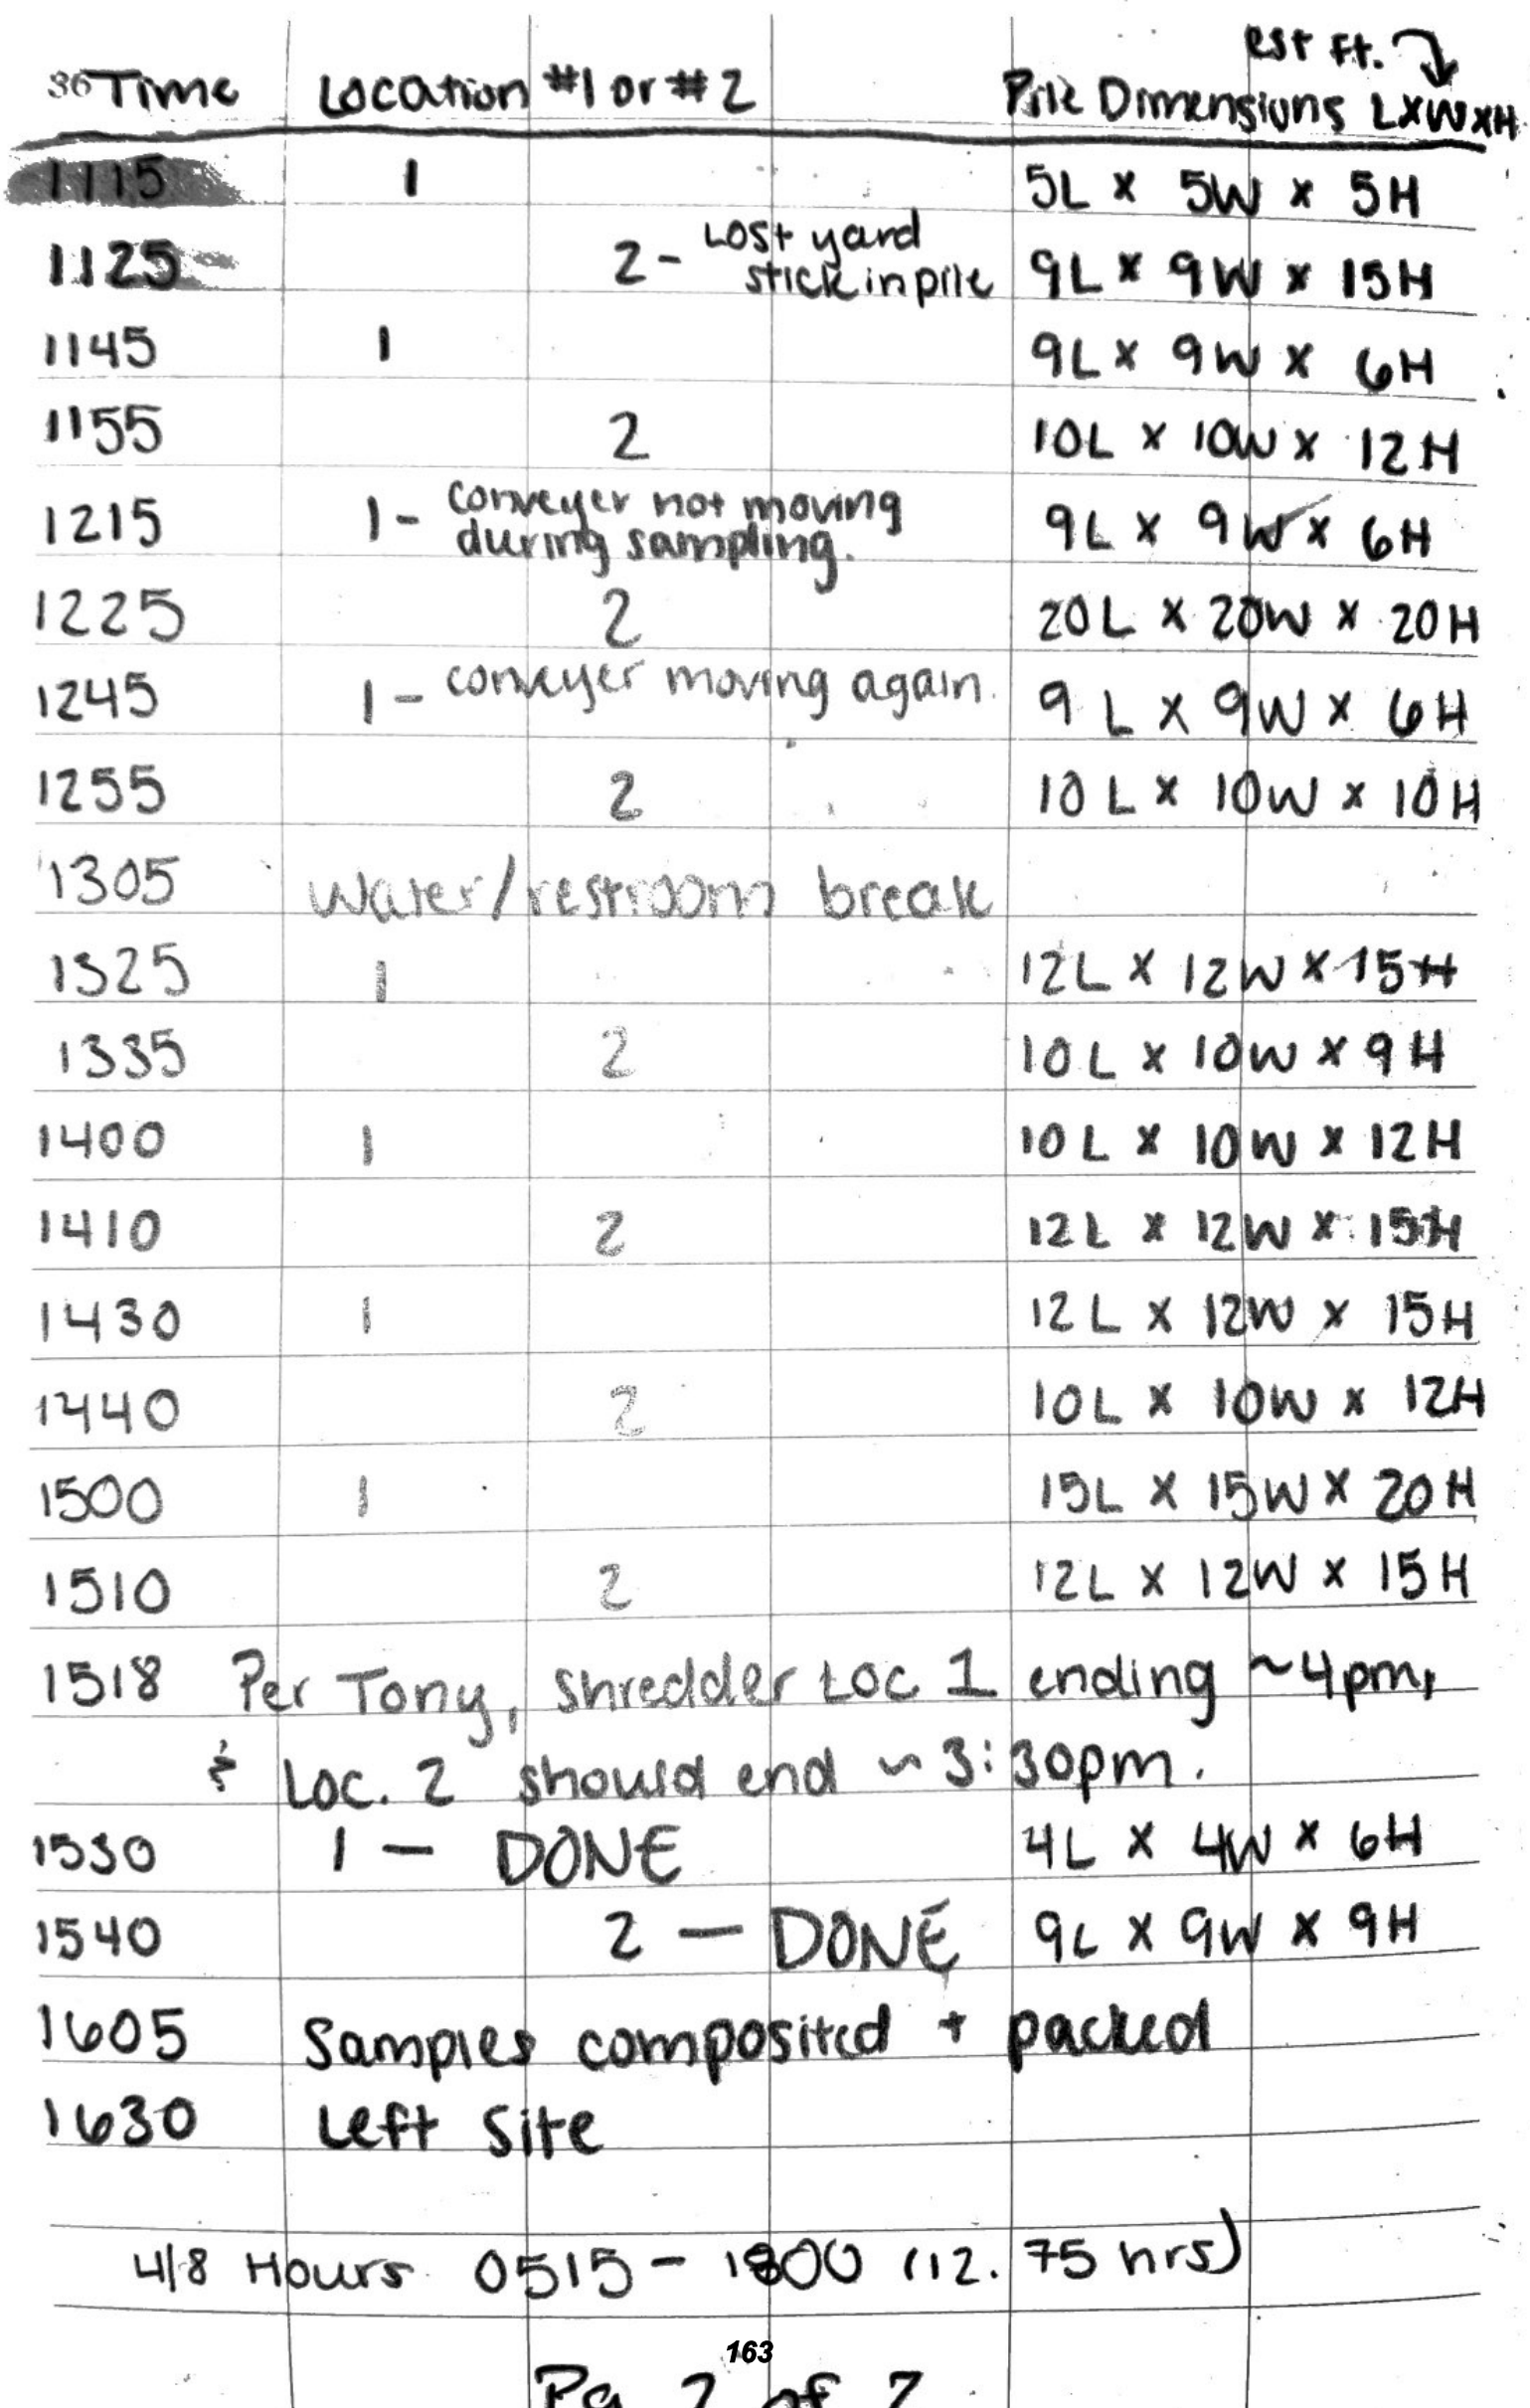 est ft.
36 Time Location #1 or #2 Pile Dimensions LXWXH
1115 1 5L x 5W x 5H
1125 2 - Lost yard stick in pile 9L x 9W x 15H
1145 1 9L x 9W x 6H
1155 2 10L x 10W x 12H
1215 1 - conveyer not moving during sampling. 9L x 9W x 6H
1225 2 20L x 20W x 20H
1245 1 - conveyer moving again. 9L x 9W x 6H
1255 2 10L x 10W x 10H
1305 Water/restroom break
1325 1 12L x 12W x 15H
1335 2 10L x 10W x 9H
1400 1 10L x 10W x 12H
1410 2 12L x 12W x 15H
1430 1 12L x 12W x 15H
1440 2 10L x 10W x 12H
1500 1 15L x 15W x 20H
1510 2 12L x 12W x 15H
1518 Per Tony, shredder Loc 1 ending ~4pm,
& Loc. 2 should end ~ 3:30pm.
1530 1 - DONE 4L x 4W x 6H
1540 2 - DONE 9L x 9W x 9H
1605 Samples composited + packed
1630 Left Site
4/8 Hours 0515 - 1800 (12.75 hrs)
163
Pg 2 of 2